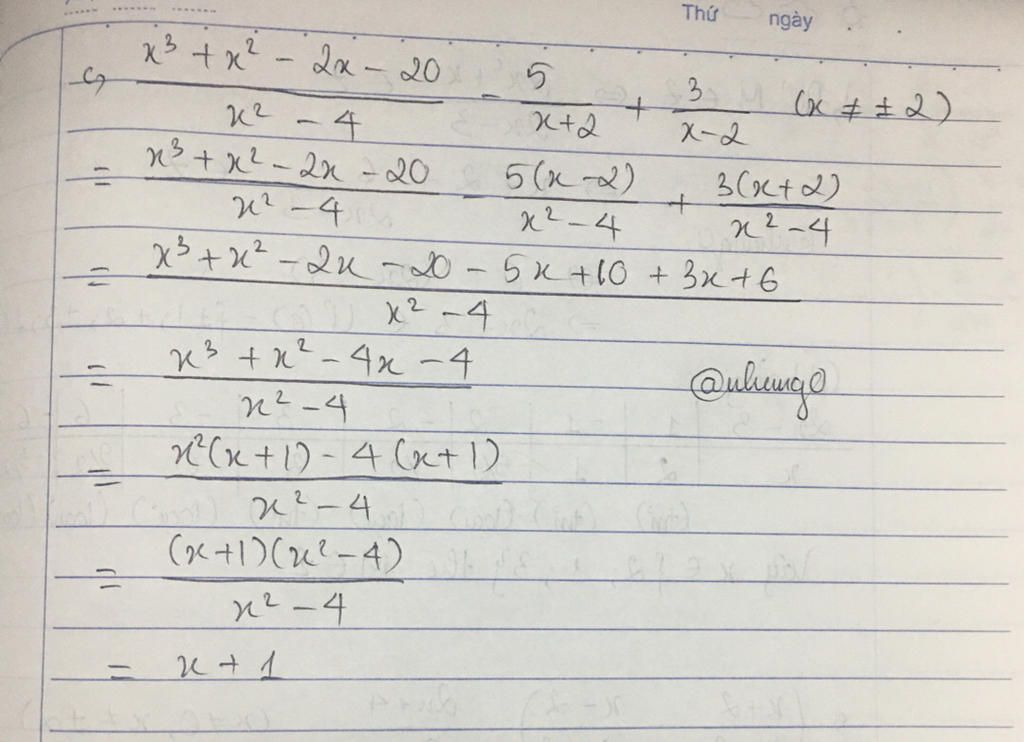 Thứ ngày
c, \frac{x^3 + x^2 - 2x - 20}{x^2 - 4} - \frac{5}{x+2} + \frac{3}{x-2} (x ≠ ± 2)
= \frac{x^3 + x^2 - 2x - 20}{x^2 - 4} - \frac{5(x-2)}{x^2 - 4} + \frac{3(x+2)}{x^2 - 4}
= \frac{x^3 + x^2 - 2x - 20 - 5x + 10 + 3x + 6}{x^2 - 4}
= \frac{x^3 + x^2 - 4x - 4}{x^2 - 4}
@nhung0
= \frac{x^2(x+1) - 4(x+1)}{x^2 - 4}
= \frac{(x+1)(x^2-4)}{x^2 - 4}
= x + 1